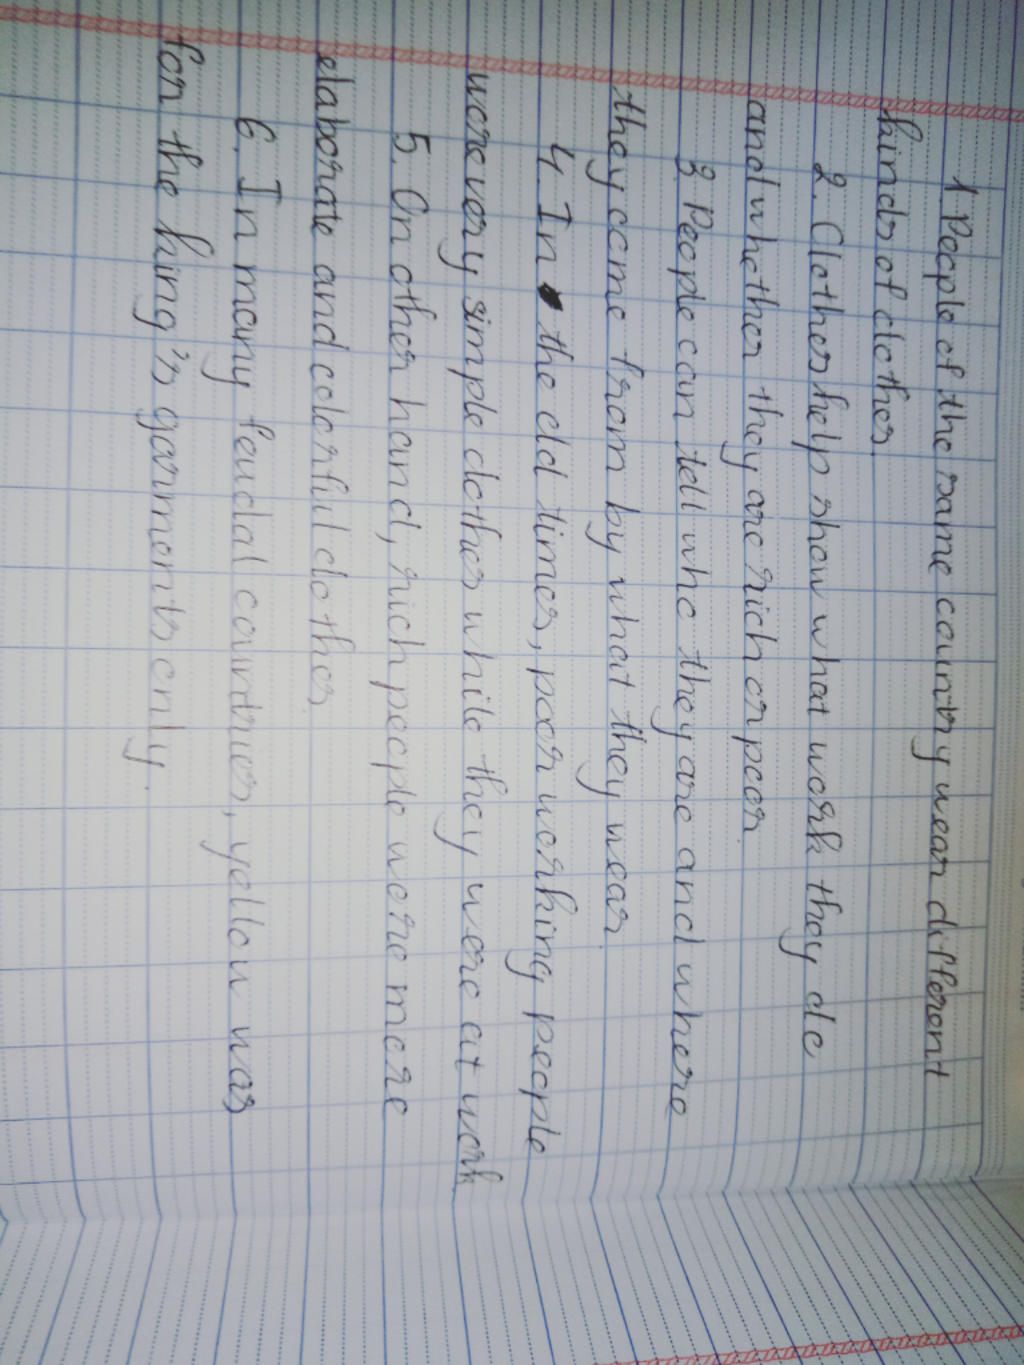 1. People of the same country wear different
kinds of clothes.
2. Clothes help show what work they do
and whether they are rich or poor.
3 People can tell who they are and where
they come from by what they wear.
4. In the old times, poor working people
wore very simple clothes while they were at work
5. On other hand, rich people wore more
elaborate and colorful clothes.
6. In many feudal countries, yellow was
for the king's garments only.